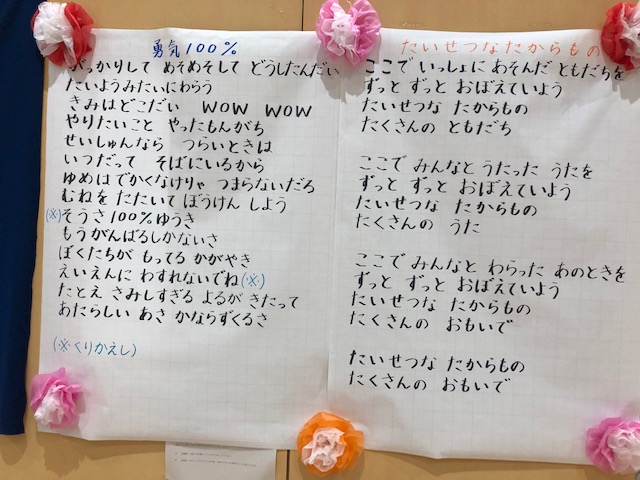 勇気100%
がっかりして めそめそして どうしたんだい
たいようみたいにわらう
きみはどこだい WOW WOW
やりたいこと やったもんがち
せいしゅんなら つらいときは
いつだって そばにいるから
ゆめは でかくなけりゃ つまらないだろ
むねを たたいて ぼうけん しよう
(※)そうさ100%ゆうき
もうがんばるしかないさ
ぼくたちが もってる かがやき
えいえんに わすれないでね(※)
たとえ さみしすぎる よるが きたって
あたらしい あさ かならずくるさ
(※くりかえし)
たいせつなたからもの
ここで いっしょに あそんだ ともだちを
ずっと ずっと おぼえていよう
たいせつな たからもの
たくさんの ともだち
ここで みんなと うたった うたを
ずっと ずっと おぼえていよう
たいせつな たからもの
たくさんの うた
ここで みんなと わらった あのときを
ずっと ずっと おぼえていよう
たいせつな たからもの
たくさんの おもいで
たいせつな たからもの
たくさんの おもいで